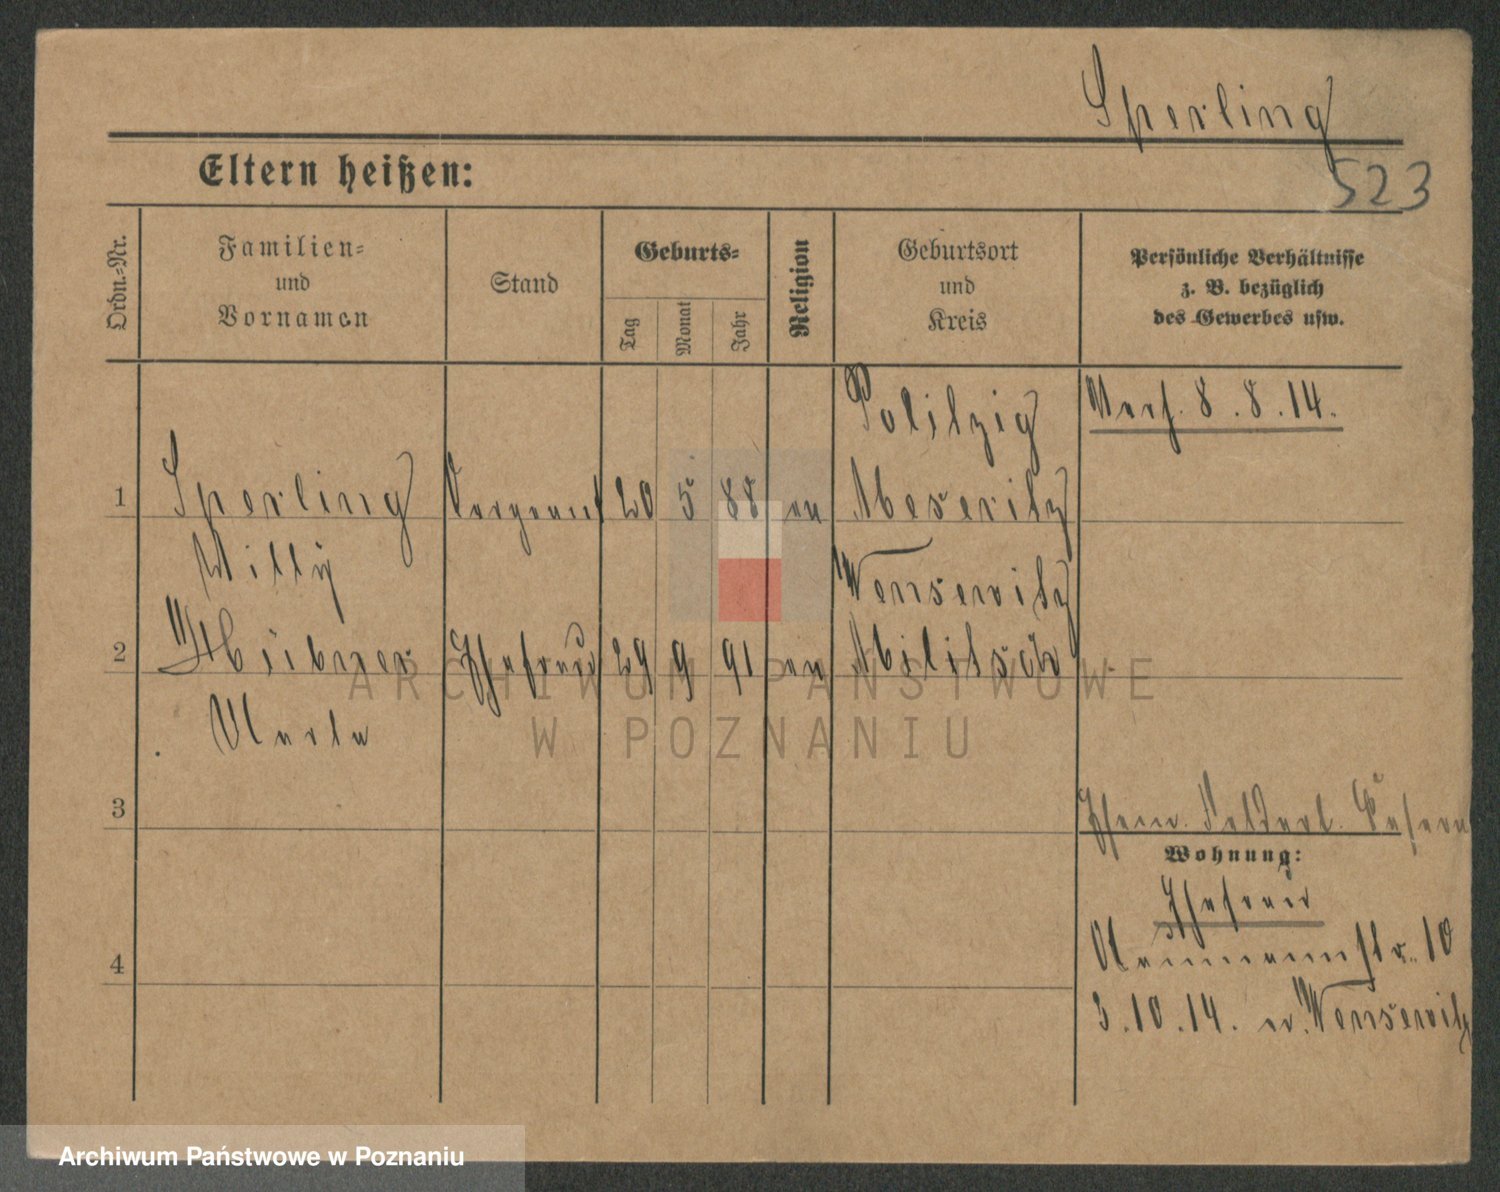 Sperling
523
Eltern heißen:
Ordn.=Nr.
Familien=
und
Vornamen
Stand
Geburts=
Tag
Monat
Jahr
Religion
Geburtsort
und
Kreis
Persönliche Verhältnisse
z. B. bezüglich
des Gewerbes usw.
Politzig
Verh. 8.8.14.
1
Sperling
Sergeant
20
5
88
ev
Meseritz
Willy
Wensewitz
2
Hübner
Ehefrau
29
9
91
ev
Militsch
Marta
3
Ehem. Feldart. Kasern
Wohnung:
Ehefrau
Naumannstr. 10
4
3.10.14. n. Wensewitz
ARCHIWUM PAŃSTWOWE
W POZNANIU
Archiwum Państwowe w Poznaniu